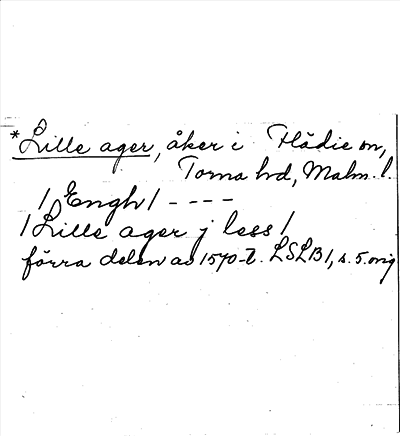 *Lille ager, åker i Flädie sn,
Torna hd, Malm. l.
/ Engh / ----
/ Lille ager j less /
förra delen av 1570-t. LSLB1, s. 5. orig